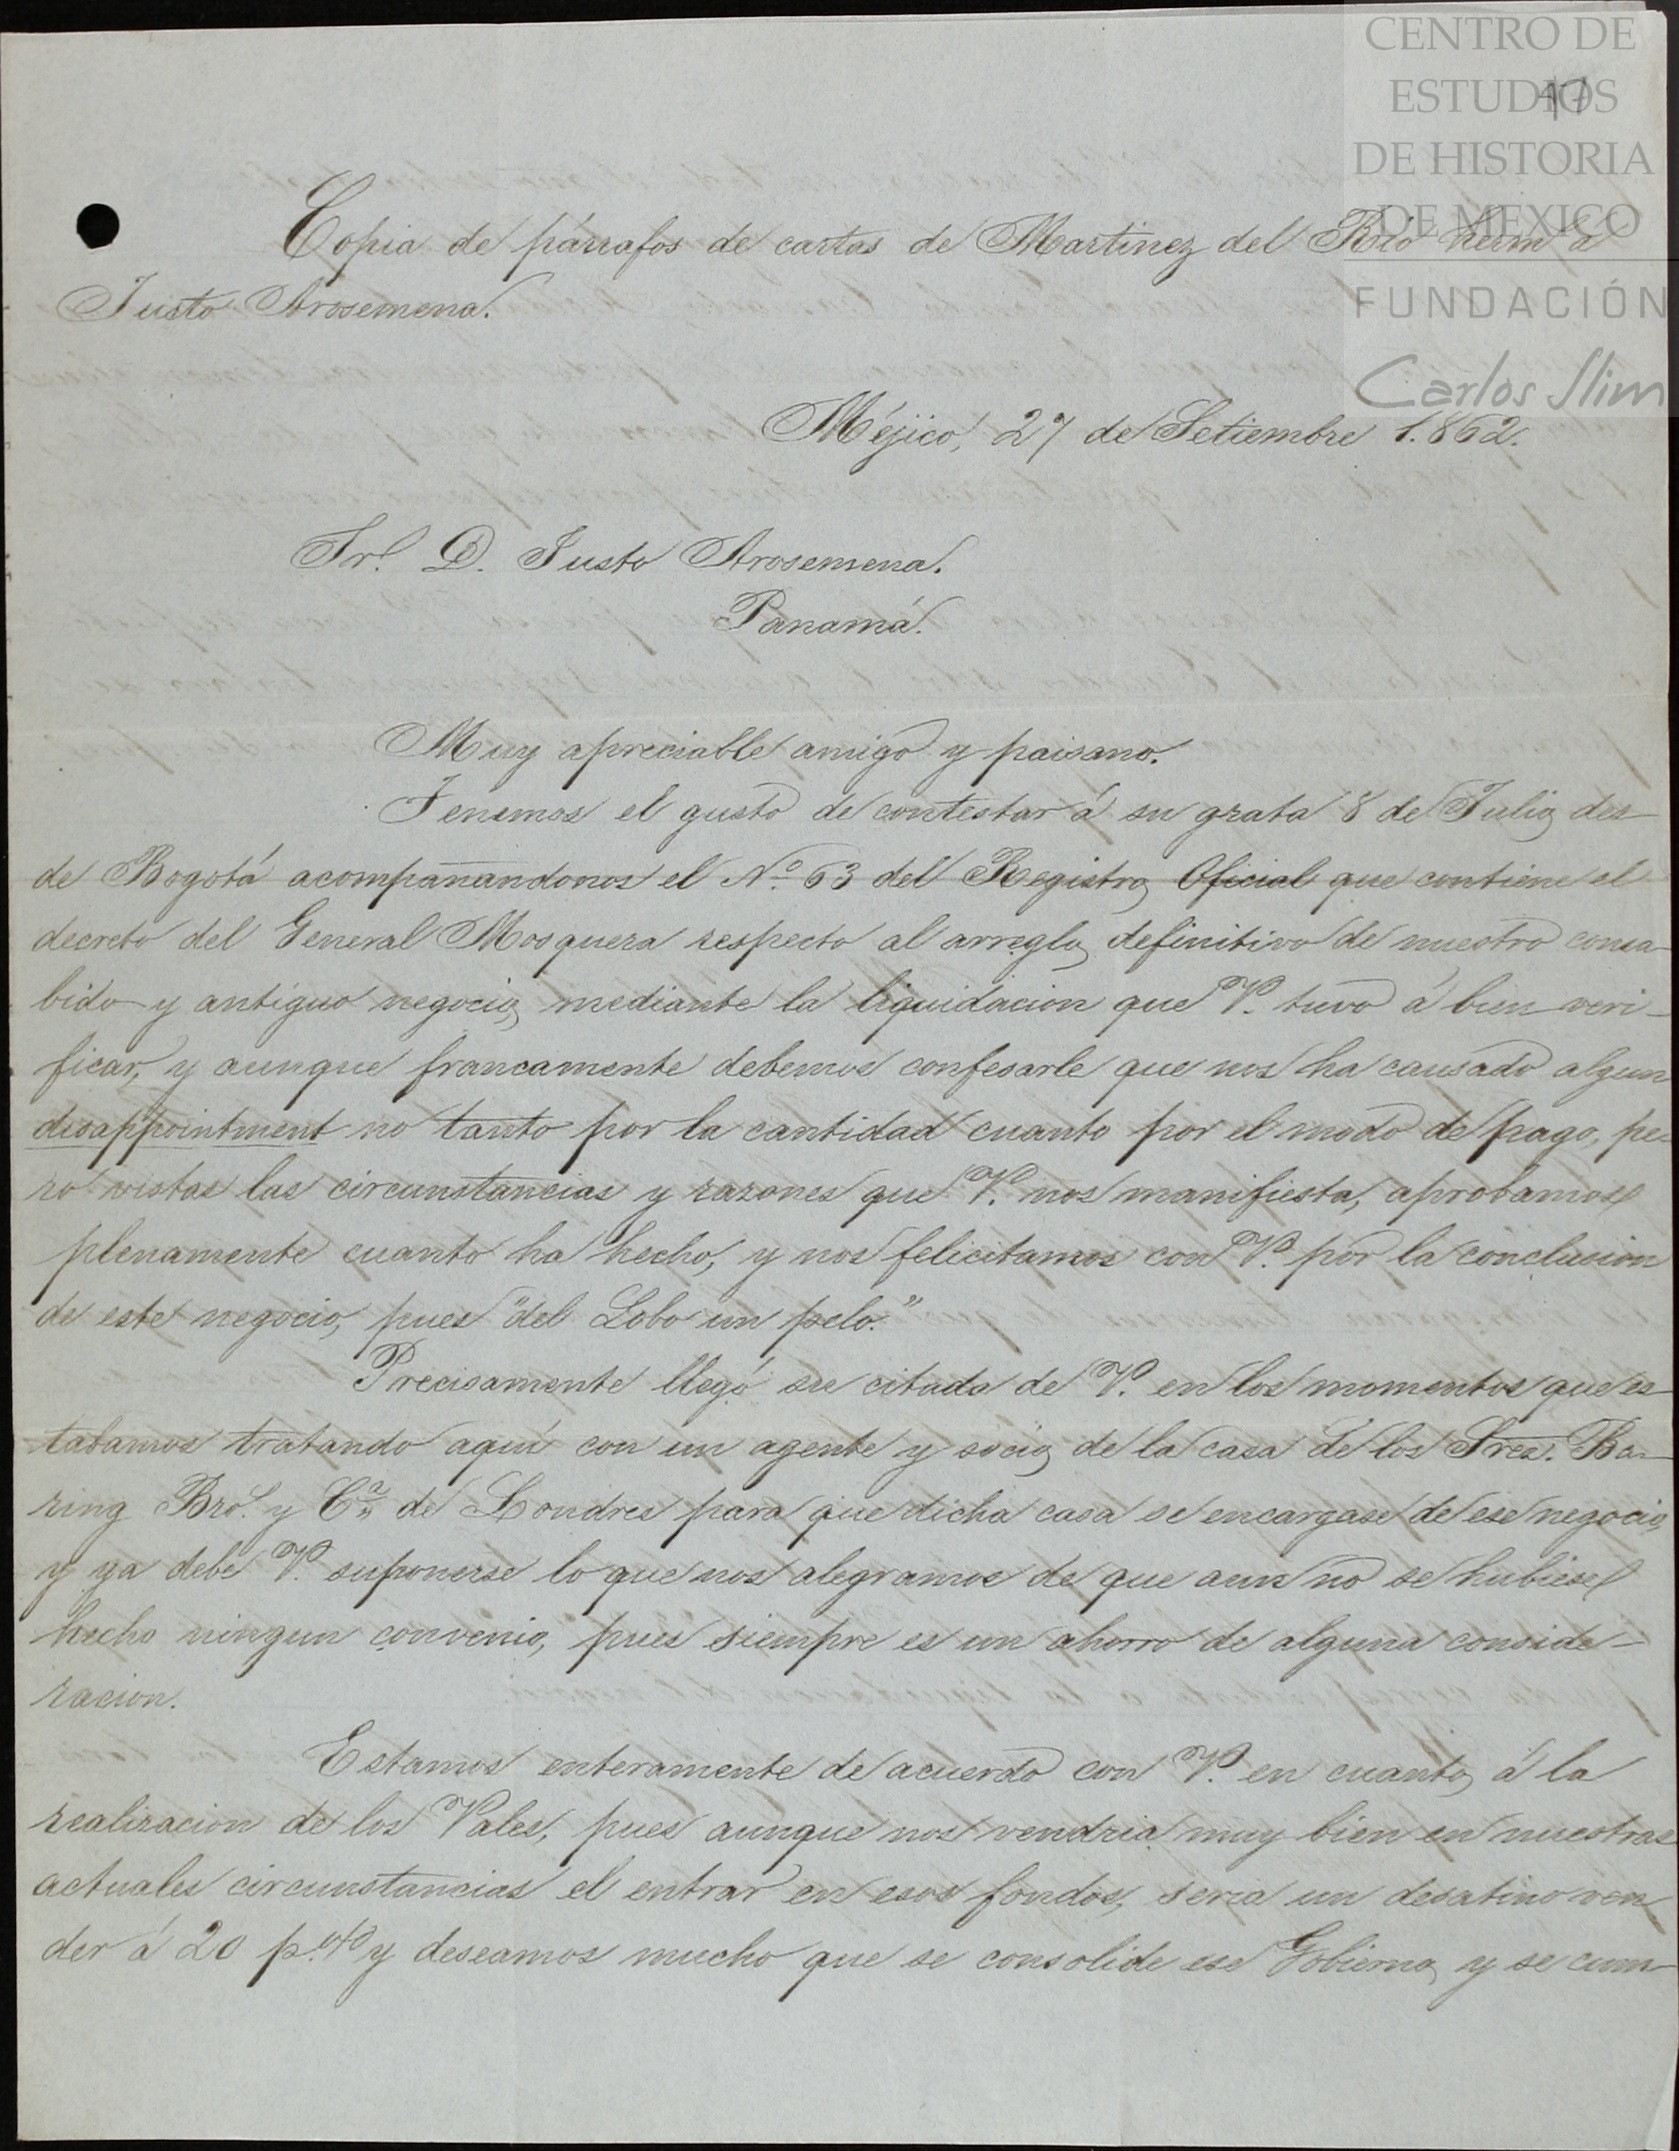 CENTRO DE
ESTUDIOS
DE HISTORIA
DE MEXICO
FUNDACIÓN
Carlos Slim
Copia de párrafos de cartas de Martinez del Rio herm.ˢ á
Justo Arosemena.
Méjico, 27 de Setiembre 1.862.
Sr. D. Justo Arosemena.
Panamá.
Muy apreciable amigo y paisano.
Tenemos el gusto de contestar á su grata 8 de Julio des
de Bogotá acompañandonos el Nº 63 del Registro Oficial que contiene el
decreto del General Mosquera respecto al arreglo definitivo de nuestro consa
bido y antiguo negocio, mediante la liquidacion que V. tuvo á bien veri-
ficar, y aunque francamente debemos confesarle que nos ha causado algun
disappointment no tanto por la cantidad cuanto por el modo de pago, pe-
ro vistas las circunstancias y razones que V. nos manifiesta, aprobamos
plenamente cuanto ha hecho, y nos felicitamos con V. por la conclusion
de este negocio, pues "del Lobo un pelo."
Precisamente llegó su citada de V. en los momentos que es-
tabamos tratando aquí con un agente y socio de la casa de los Sres. Ba-
ring Bro. y Cª de Londres para que dicha casa se encargase de ese negocio,
y ya debe V. suponerse lo que nos alegramos de que aun no se hubiese
hecho ningun convenio, pues siempre es un ahorro de alguna conside-
racion.
Estamos enteramente de acuerdo con V. en cuanto á la
realizacion de los Vales, pues aunque nos vendria muy bien en nuestras
actuales circunstancias el entrar en esos fondos, seria un desatino ven
der á 20 p.% y deseamos mucho que se consolide ese Gobierno y se cum-